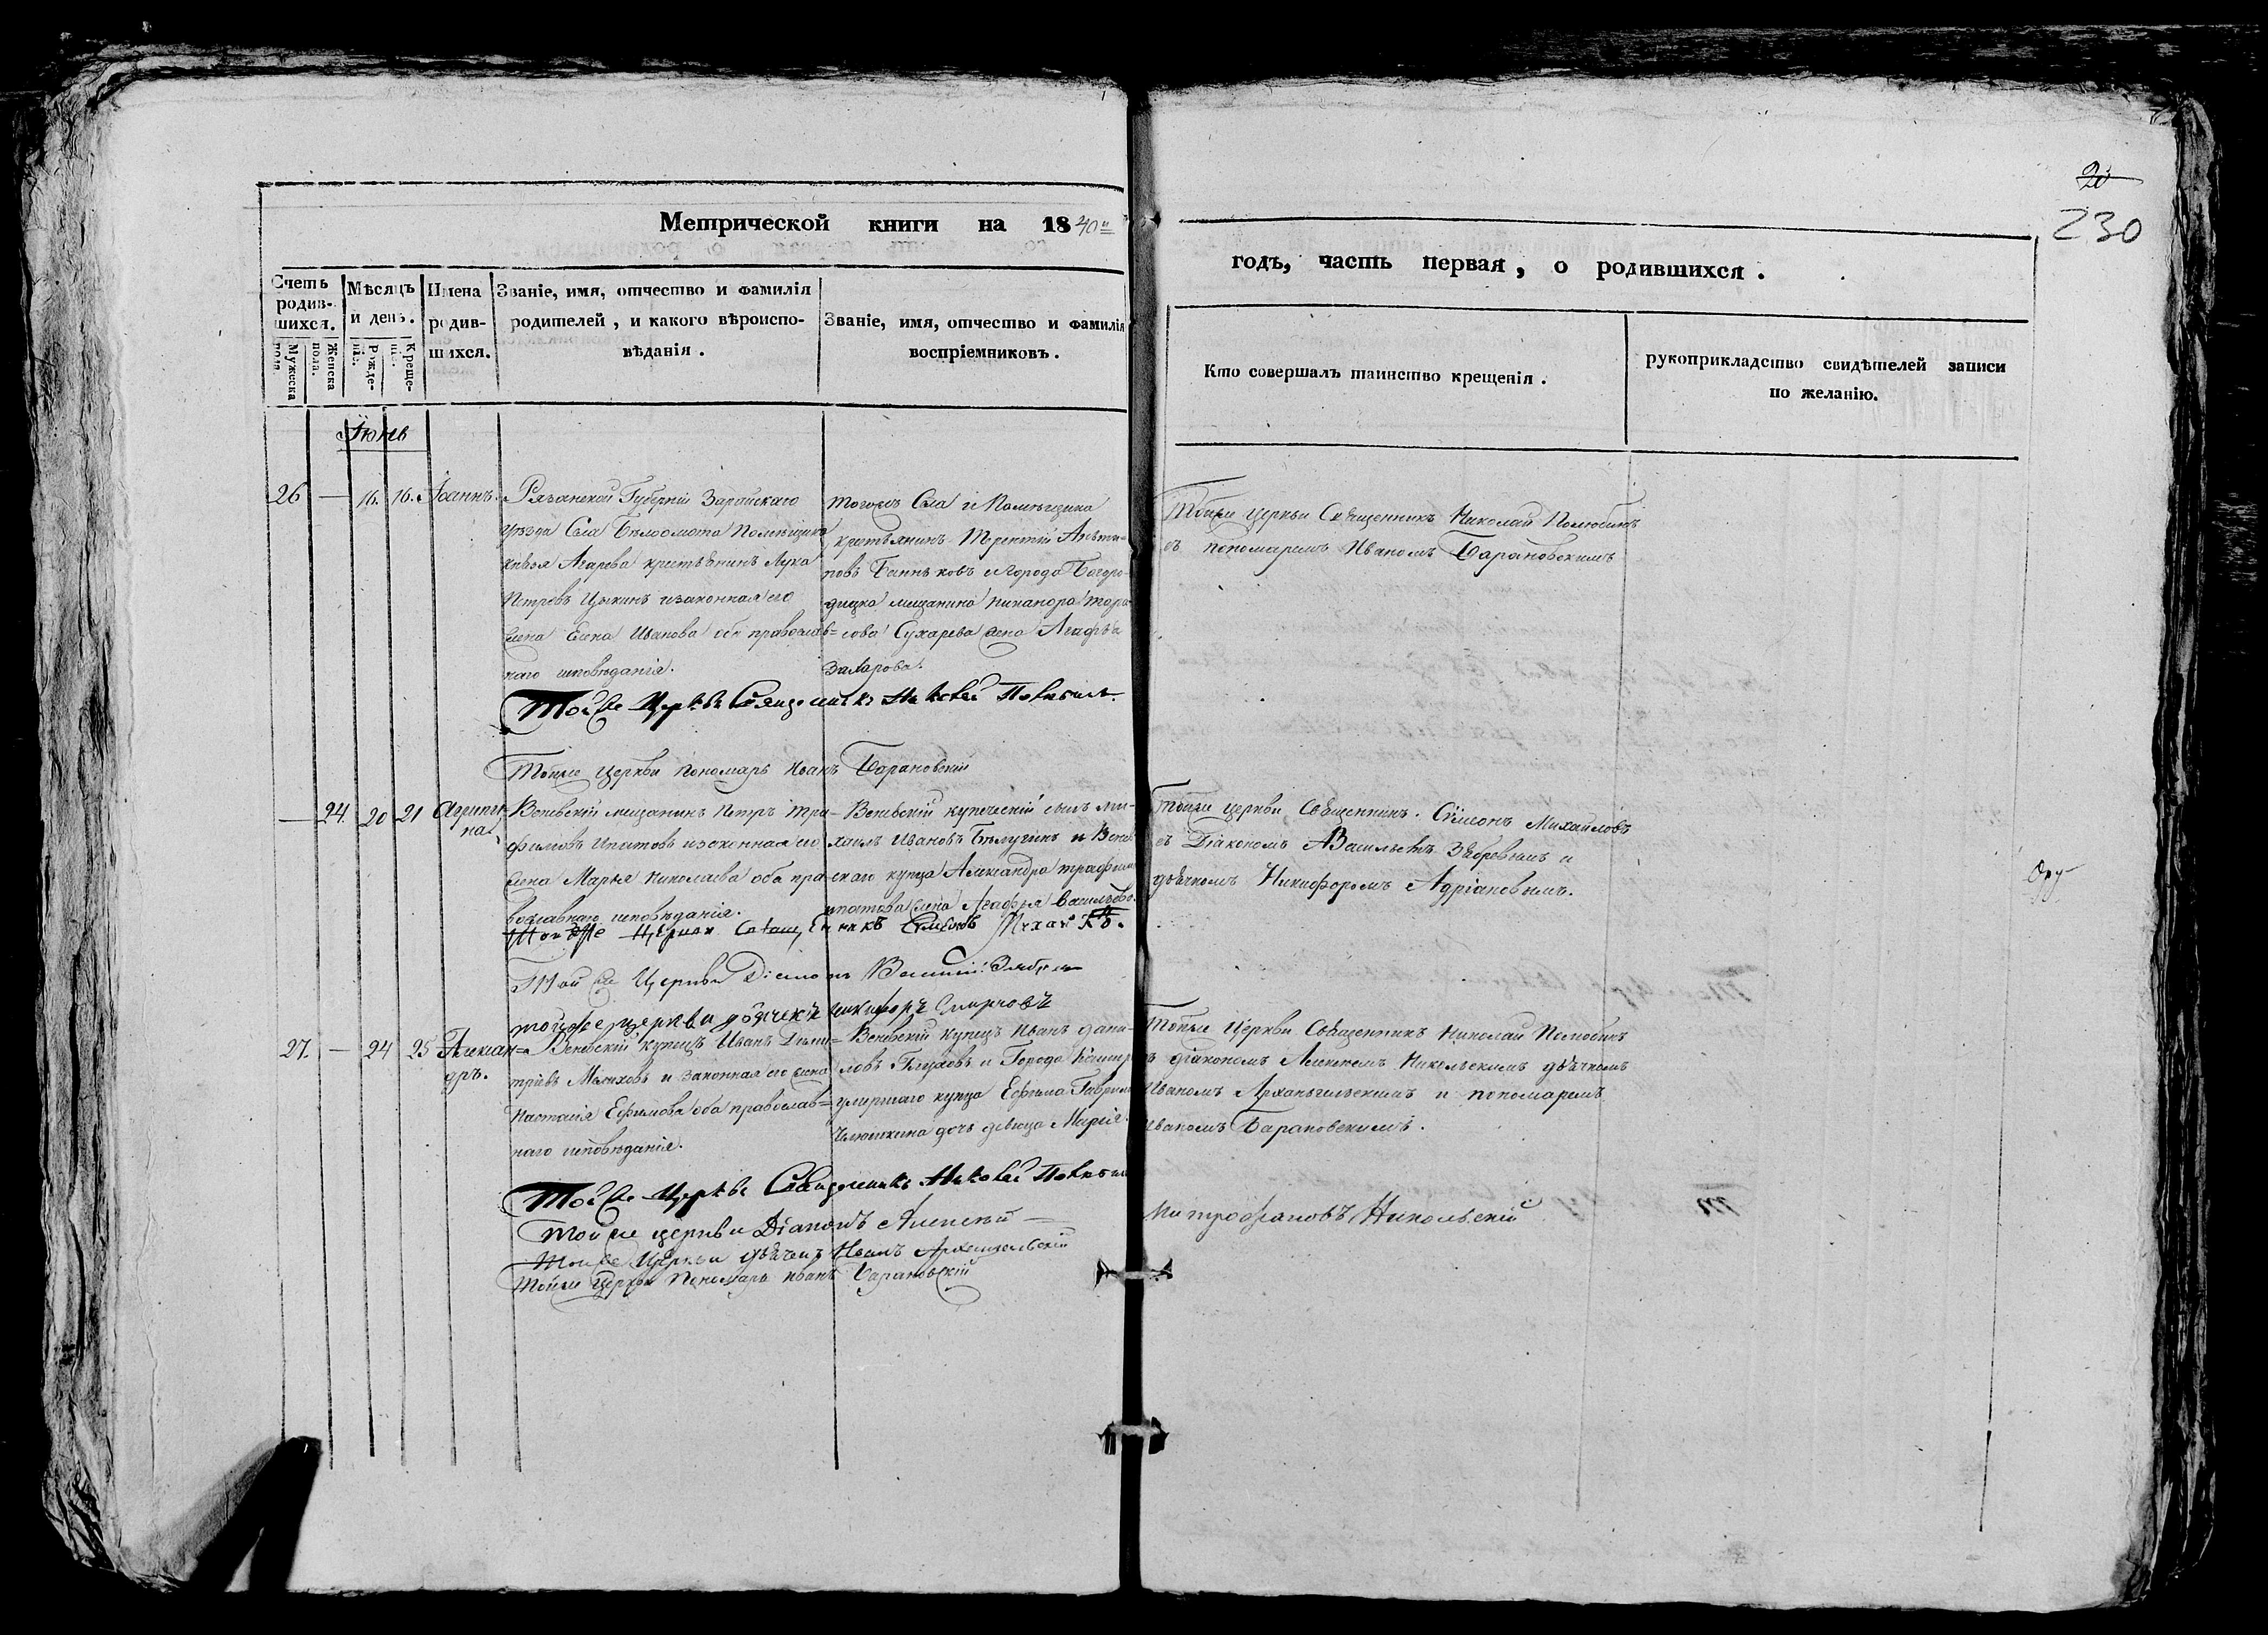 20
230
Метрической книги на 1840
годъ, часть первая, о родившихся.
Счетъ родив-шихся.
Мѣсяцъ и день.
Имена родив-шихся.
Званіе, имя, отчество и фамилія
родителей, и какого вѣроиспо-
вѣданія.
Званіе, имя, отчество и фамилія
воспріемниковъ.
Мужеска пола.
Женска пола.
Рожде-нія.
Креще-нія.
Кто совершалъ таинство крещенія.
рукоприкладство свидѣтелей записи
по желанію.
Іюнь
26 — 16. 16. Іоаннъ.
Рязанской Губерніи Зарайскаго
уѣзда Села Бѣлоомота Помѣщика
князя Агарева крестьянинъ Лука
Петровъ Цыкинъ изаконная его
жена Елена Иванова оба православ=
наго исповѣданія.
тогожъ Села и Помѣщика
крестьянинъ Терентій Антипо-
повъ Банньковъ игорода Богоро-
дицка мещанина Никанора Тара-
сова Сухарева жена Агафья
Захарова.
Тойже церкви Священникъ Николай Полюбинъ
съ пономаремъ Иваномъ Барановскимъ
Тойже Церкви Священникъ Николай Полюбинъ.
Тойже Церкви Пономарь Иванъ Барановскій
— 24. 20 21 Агрипи-
на
Веневскій мещанинъ Петръ Тра-
фимовъ Ипатовъ изаконная его
жена Марья Николаева оба пра-
вославнаго исповѣданія.
Веневскій купеческій сынъ Ми-
хаилъ Ивановъ Бѣлугинъ и Венев
скаго купца Александра Трафим
ипатова жена Агафья Васильево.
Тойже церкви Священникъ. Симеонъ Михайловъ
съ Діакономъ Васильемъ
дьячкомъ Никифоромъ Адріановымъ.
Тойже Церкви Священникъ Симеонъ Михай
Той же Церкви Діаконъ Василій
тойже церкви дьячекъ никифоръ Смирновъ
27. — 24 25 Алексан=
дръ.
Веневскій купецъ Иванъ Дими=
тріевъ Малиховъ и законная его жена
Настасія Ефимова оба православ=
наго исповѣданія.
Веневскій купецъ Иванъ Дани-
ловъ Глуховъ и Города Кашир
умершаго купца Ефима Гаврил
дочь девица Марія.
Тойже Церкви Священникъ Николай Полюбинъ
съ діакономъ Алексѣемъ Никольскимъ дьячкомъ
Иваномъ Архангельскимъ и пономаремъ
Иваномъ Барановскимъ.
Тойже Церкви Священникъ Николай Полюбин
Тойже церкви Діаконъ Алексѣй —
Митрофановъ Никольскій
Тойже Церкви дьячекъ Иванъ Архангельскій
Тойже Церкви Пономарь иванъ Барановскій